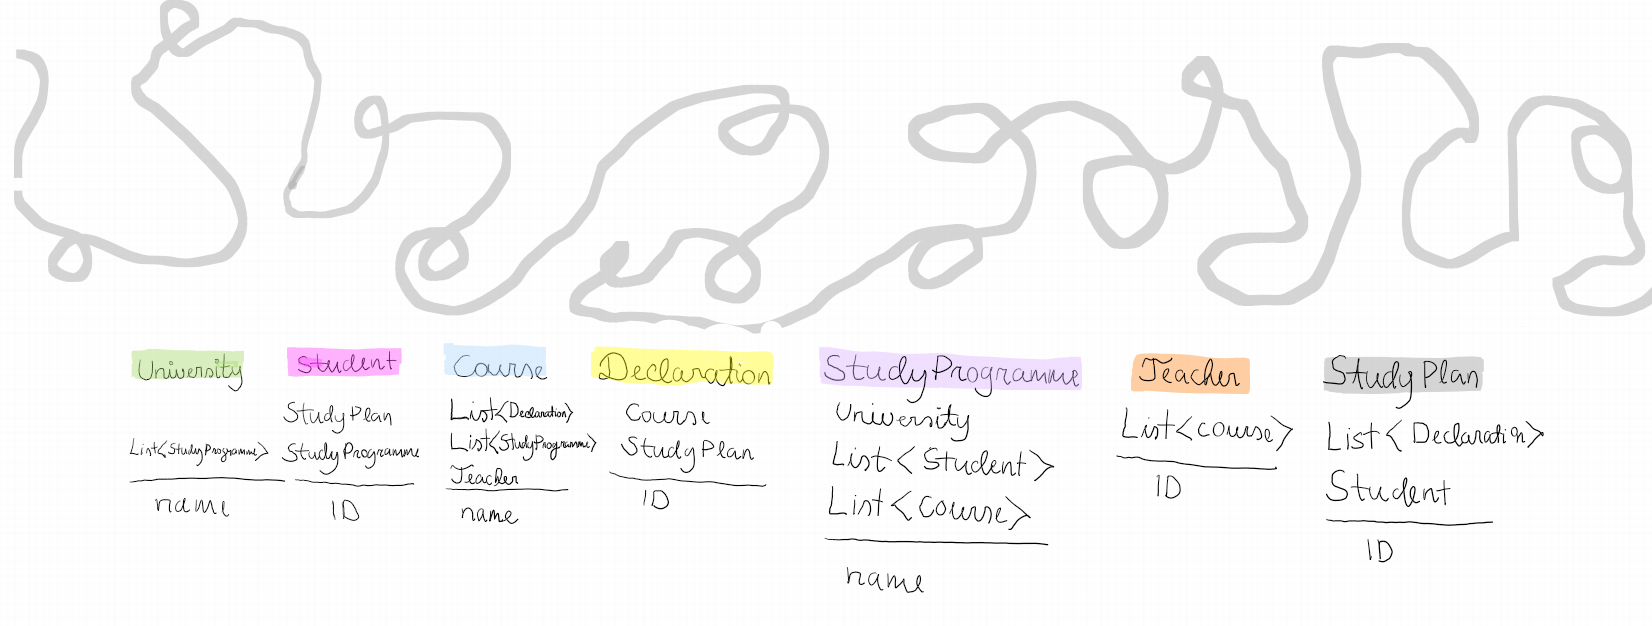 University
List<StudyProgramme>
name
Student
StudyPlan
StudyProgramme
ID
Course
List<Declaration>
List<StudyProgramme>
Teacher
name
Declaration
Course
StudyPlan
ID
StudyProgramme
University
List<Student>
List<Course>
name
Teacher
List<course>
ID
StudyPlan
List<Declaration>
Student
ID